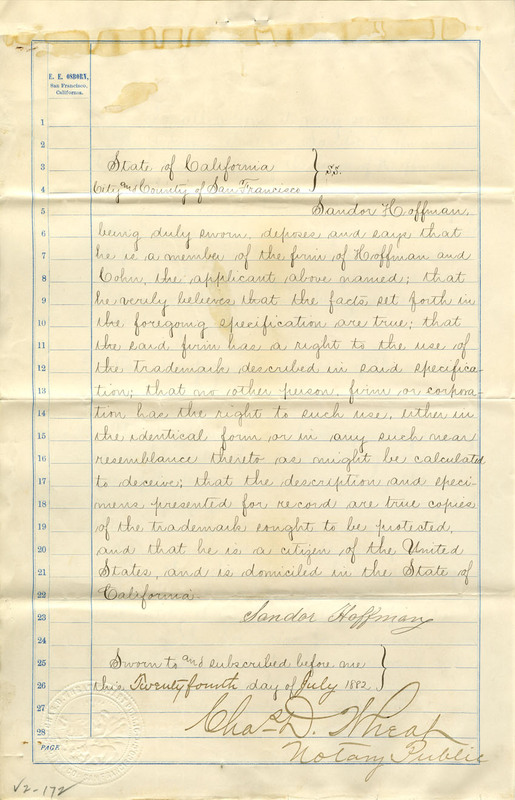 E. E. OSBORN,
San Francisco,
California.
1
2
3 State of California } SS.
4 City and County of San Francisco
5 Sandor Hoffman,
6 being duly sworn, deposes and says that
7 he is a member of the firm of Hoffman and
8 Cohn, the applicant above named; that
9 he verily believes that the facts set forth in
10 the foregoing specification are true; that
11 the said firm has a right to the use of
12 the trademark described in said specifica-
13 tion; that no other person, firm or corpora-
14 tion has the right to such use, either in
15 the identical form or in any such near
16 resemblance thereto as might be calculated
17 to deceive; that the description and speci-
18 mens presented for record are true copies
19 of the trademark sought to be protected,
20 and that he is a citizen of the United
21 States, and is domiciled in the State of
22 California.
23 Sandor Hoffman
24
25 Sworn to and subscribed before me }
26 this Twenty fourth day of July 1882
27 Chas. D. Wheat
28 Notary Public
PAGE
V2-172